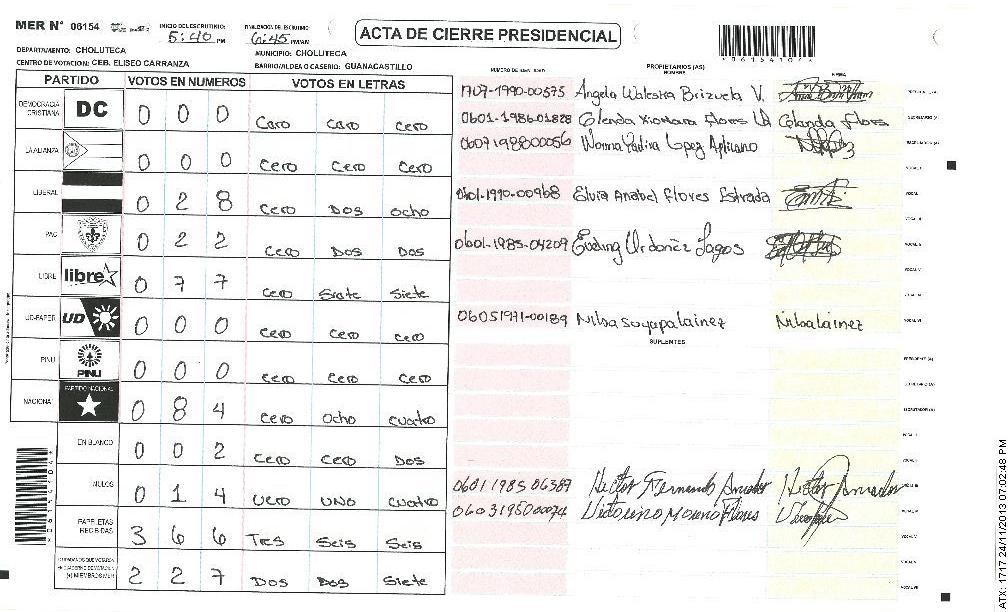 MER N° 06154 INICIO DEL ESCRUTINIO: 5:40 PM FINALIZACION DEL ESCRUTINIO: 6:45 PM/AM
ACTA DE CIERRE PRESIDENCIAL
DEPARTAMENTO: CHOLUTECA MUNICIPIO: CHOLUTECA
CENTRO DE VOTACION: CEB. ELISEO CARRANZA BARRIO/ALDEA O CASERIO: GUANACASTILLO
PARTIDO VOTOS EN NUMEROS VOTOS EN LETRAS
DEMOCRACIA CRISTIANA DC 0 0 0 Cero Cero Cero
LA ALIANZA 0 0 0 Cero Cero Cero
LIBERAL 0 2 8 Cero Dos Ocho
PAC 0 2 2 Cero Dos Dos
LIBRE libre 0 7 7 Cero Siete Siete
UD-FAPER UD 0 0 0 Cero Cero Cero
PINU PINU 0 0 0 Cero Cero Cero
NACIONAL PARTIDO NACIONAL 0 8 4 Cero Ocho Cuatro
EN BLANCO 0 0 2 Cero Cero Dos
NULOS 0 1 4 Cero Uno Cuatro
PAPELETAS RECIBIDAS 3 6 6 Tres Seis Seis
CIUDADANOS QUE VOTARON EN CUADERNO DE VOTACION (+) MIEMBROS MER 2 2 7 Dos Dos Siete
PROPIETARIOS (AS)
NOMBRE FIRMA
1707-1990-00575 Angela Waleska Brizuela V.
0601-1986-01828 Glenda Xiomara Flores Glenda Flores
0607198800056 Norma Yadira Lopez Aplicano
0601-1990-00968 Elvia Anabel Flores Estrada
0601-1985-04209 Eveling Ordoñez Lagos
06051971-00189 Nilsa Suyapa Lainez Nilsa Lainez
SUPLENTES
0601 1985 06389 Hector Fernando Amador Hector Amador
0603195000074 Victorino Moreno Flores
*061541041*
ATX: 1717 24/11/2013 07:02:48 PM